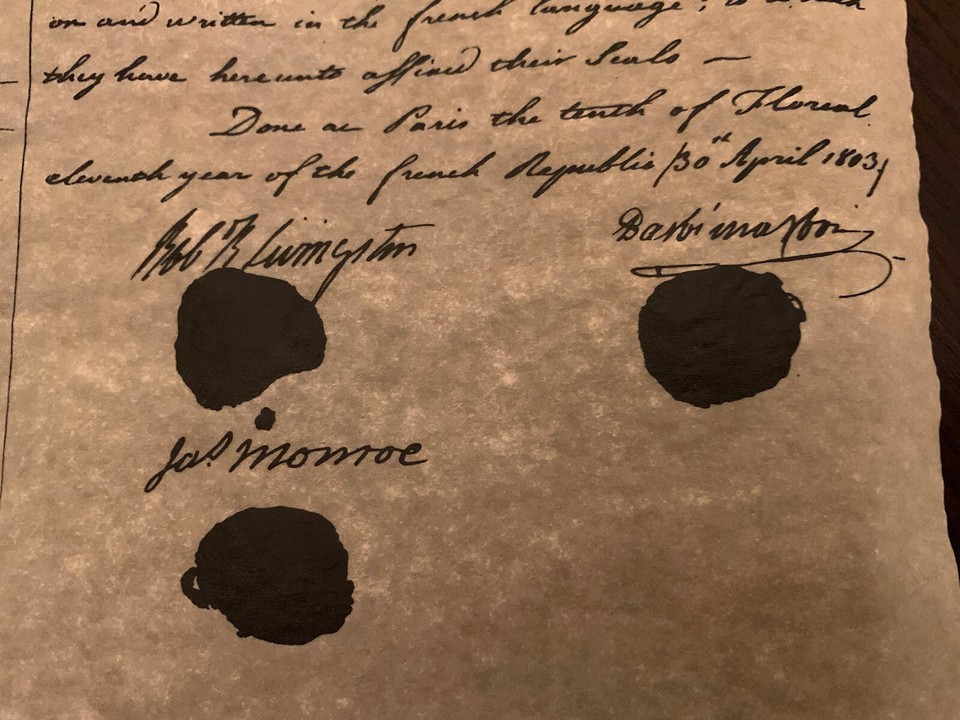 on and written in the french language; to
they have hereunto affixed their Seals —
Done at Paris the tenth of Floreal
eleventh year of the french Republic /30st April 1803/
Rob R Livingston
Barbé marbois
Jas Monroe